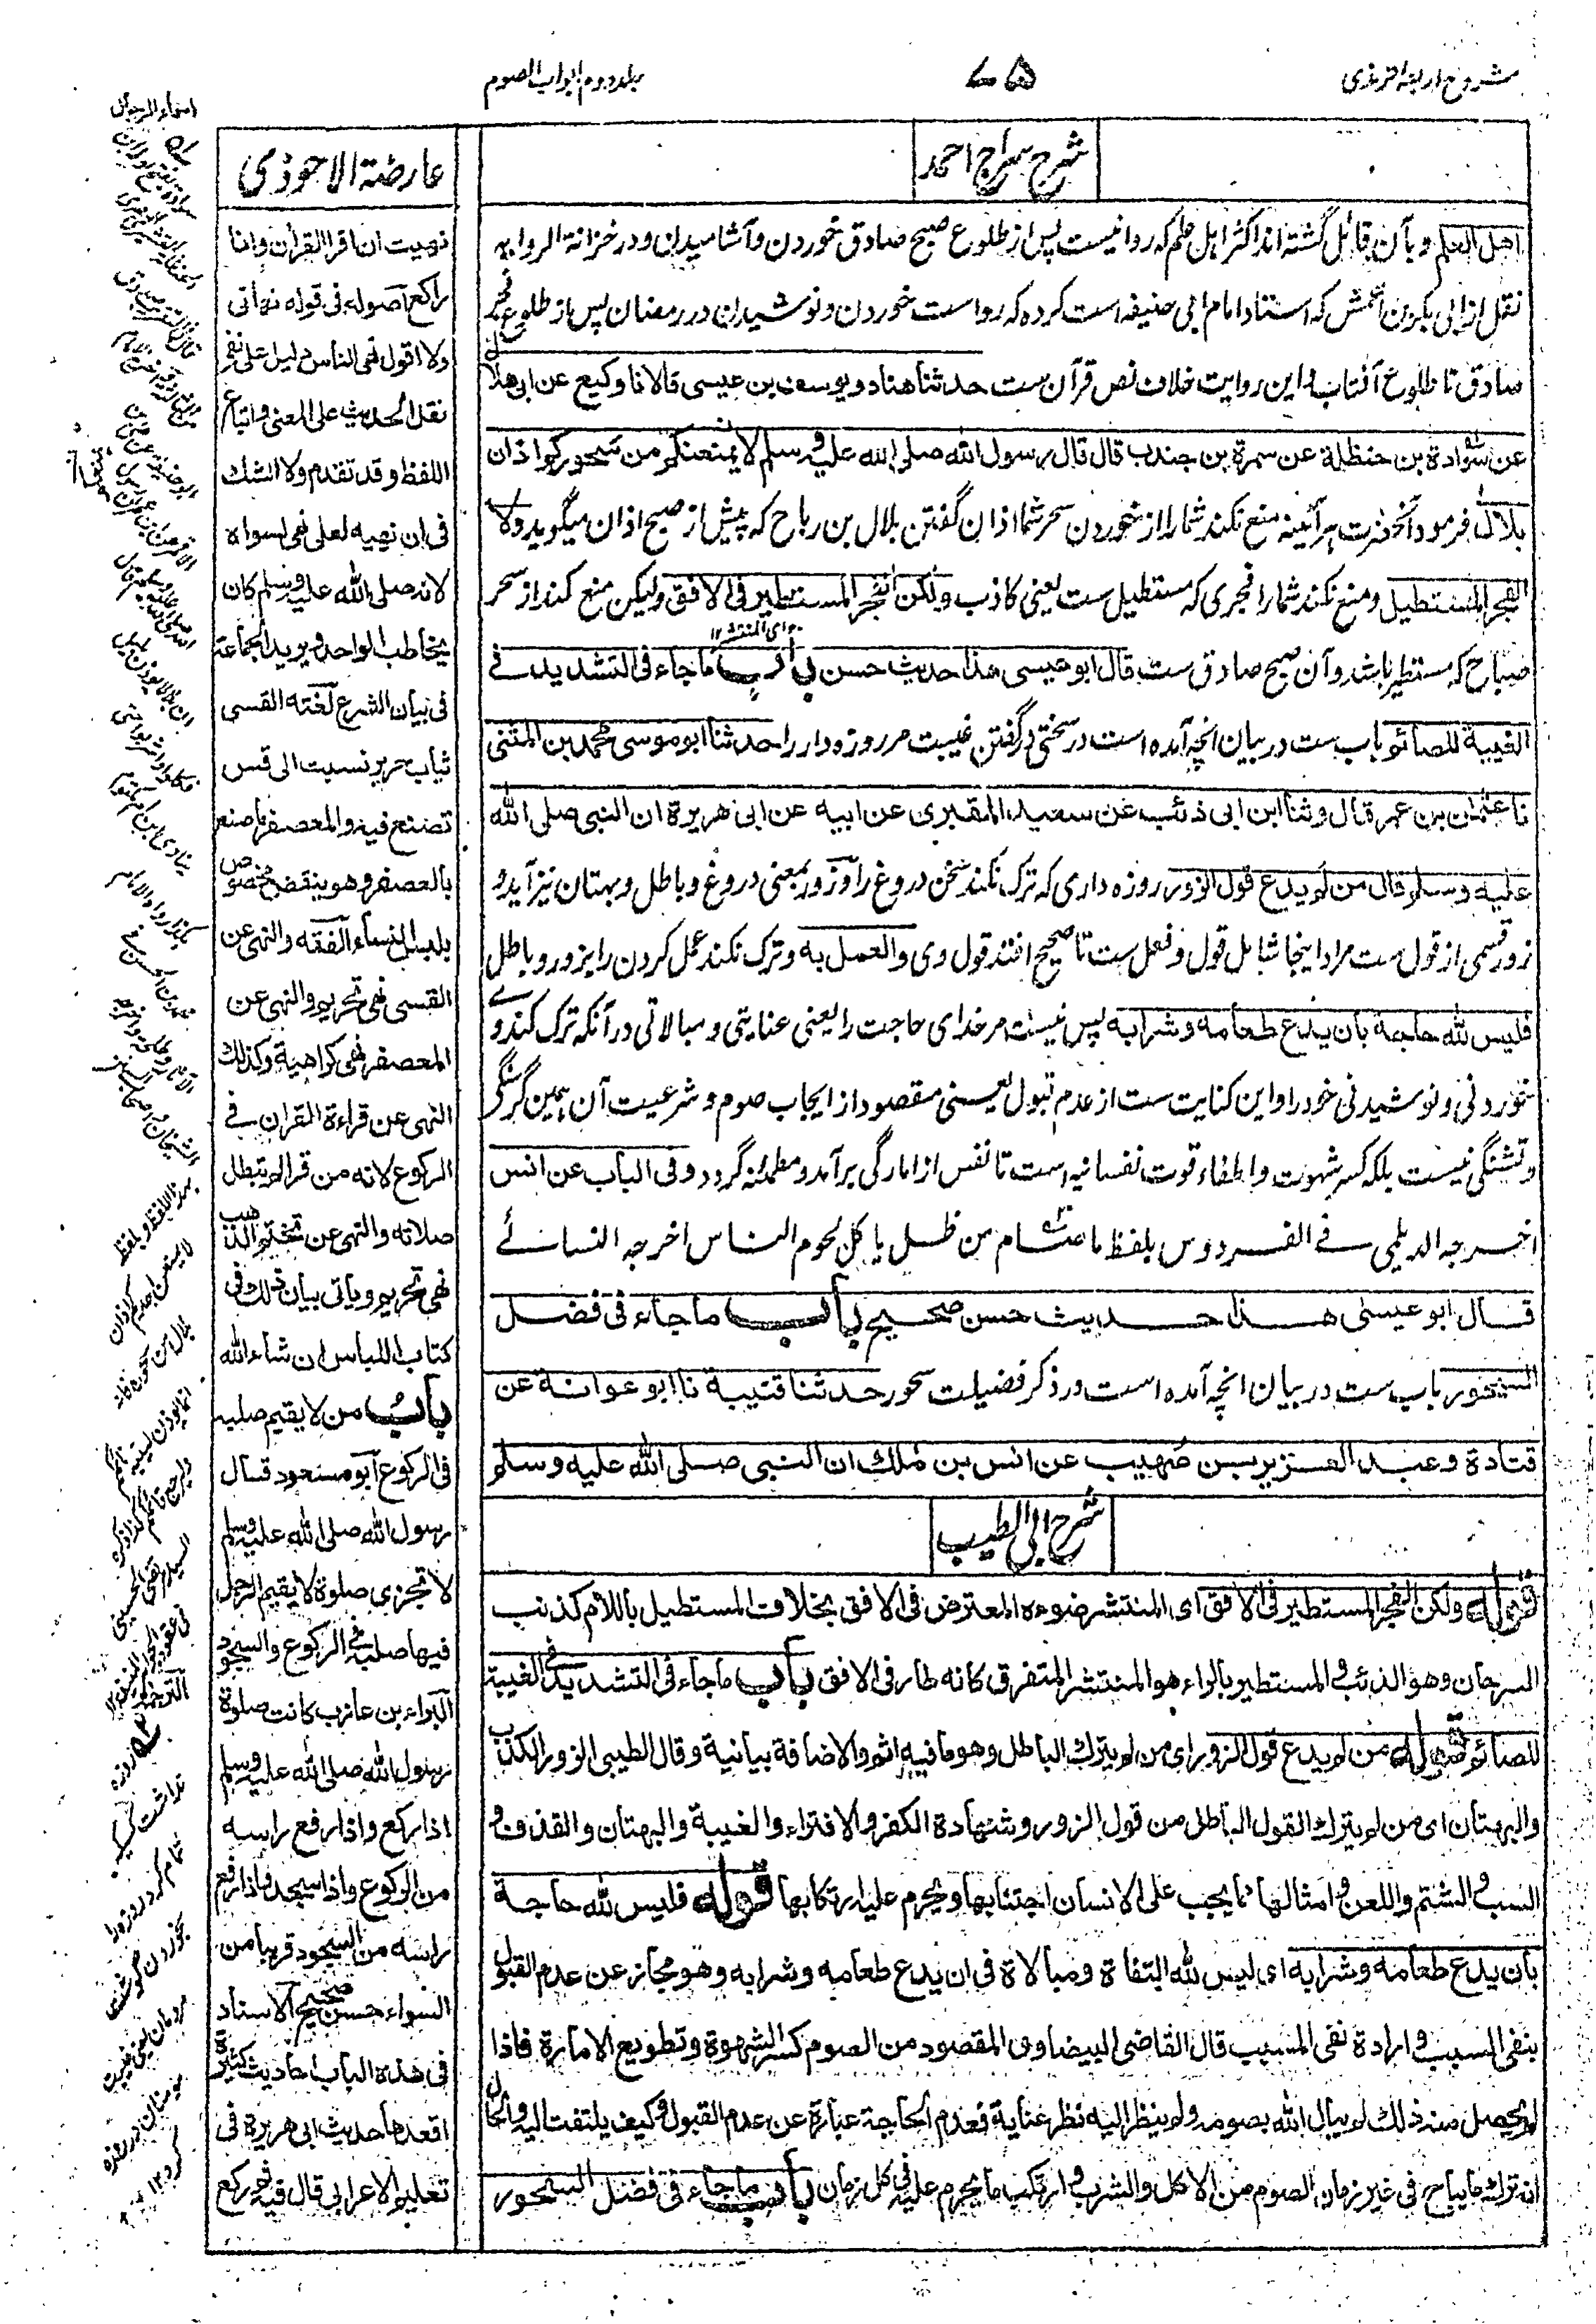 شروح اربعہ ترمذی
۷۵
جلد دوم ابواب الصوم
شرح سراج احمد
اهل العلم و بآن قائل گشته اند اکثر اہل علم که روا نیست پس از طلوع صبح صادق خوردن و آشامیدن و در خزانة الروایہ
نقل از ابی بکر بن اعمش که استناد امام ابی حنیفہ است کرده که رواست خوردن و نوشیدن در رمضان پس از طلوع فجر
صادق تا طلوع آفتاب و این روایت خلاف نص قرآن ست حدثنا هناد و یوسف بن عیسی قالا نا وکیع عن ابی هلال
عن سوادة بن حنظلة عن سمرة بن جندب قال قال رسول الله صلی الله علیه وسلم لا یمنعنکم من سحورکم اذان
بلال فرمود آنحضرت ہر آئینہ منع نکند شما را از خوردن سحر شما اذان گفتن بلال بن رباح که پیش از صبح اذان میگوید ولا
الفجر المستطیل و منع نکند شما را فجری که مستطیل ست یعنی کاذب ولکن الفجر المستطیر فی الافق ولیکن منع کند از سحر
ای المنتشر ۱۲
صباح که مستطیر باشد و آن صبح صادق ست قال ابو عیسی هذا حدیث حسن باب ما جاء فی التشدید فے
الغیبة للصائم باب ست در بیان انچہ آمده است در سختی در گفتن غیبت مر روزه دار را حدثنا ابو موسی محمد بن المثنی
نا عثمان بن عمر قال وثنا ابن ابی ذئب عن سعید المقبری عن ابیه عن ابی هریرة ان النبی صلی الله
علیه وسلم قال من لم یدع قول الزور روزه داری که ترک نکند سخن دروغ را و زور بمعنی دروغ و باطل و بہتان نیز آید و
زور قسمی از قول ست مراد اینجا شامل قول و فعل ست تا صحیح افتد قول وی والعمل به و ترک نکند عمل کردن را بزور و باطل
فلیس لله حاجة بان یدع طعامه وشرابه پس نیست مر خدای حاجت را یعنی عنایتی و مبالاتی در آنکہ ترک کند وے
خوردنی و نوشیدنی خود را و این کنایت ست از عدم قبول یعنی مقصود از ایجاب صوم و شرعیت آن ہمین گرسنگی
و تشنگی نیست بلکہ کسر شہوت و اطفاء قوت نفسانیہ است تا نفس از امارگی برآمد و مطمئنہ گردد وفی الباب عن انس
اخرجه الدیلمی فے الفردوس بلفظ ما صام من ظل یاکل لحوم الناس اخرجه النسائے
قال ابو عیسی هذا حدیث حسن صحیح باب ما جاء فی فضل
السحور باب ست در بیان انچہ آمده است در ذکر فضیلت سحور حدثنا قتیبة نا ابو عوانة عن
قتادة وعبد العزیز بن صهیب عن انس بن مالك ان النبی صلی الله علیه وسلم
شرح ابی الطیب
قوله ولکن الفجر المستطیر فی الافق ای المنتشر ضوءه المعترض فی الافق بخلاف المستطیل باللام کذنب
السرحان وهو الذئب والمستطیر بالراء هو المنتشر المتفرق کانه طار فی الافق باب ما جاء فی التشدید فی الغیبة
للصائم قوله من لم یدع قول الزور ای من لم یترك الباطل وهو ما فیه اثم والاضافة بیانیة وقال الطیبی الزور الکذب
والبهتان ای من لم یترك القول الباطل من قول الزور وشهادة الکفر والافتراء والغیبة والبهتان والقذف و
السب والشتم واللعن وامثالها مما یجب علی الانسان اجتنابها ویحرم علیه ارتکابها قوله فلیس لله حاجة
بان یدع طعامه وشرابه ای لیس لله التفاة ومبالاة فی ان یدع طعامه وشرابه وهو مجاز عن عدم القبول
بنفی السبب وارادة نفی المسبب قال القاضی البیضاوی المقصود من الصوم کسر الشهوة وتطویع الامارة فاذا
لم یحصل منه ذلك لم یبال الله بصومه ولم ینظر الیه نظر عنایة فعدم الحاجة عبارة عن عدم القبول وکیف یلتفت الیه والحال
انه ترك ما یباح فی غیر زمان الصوم من الاکل والشرب وارتکب ما یحرم علیه فی کل زمان باب ما جاء فی فضل السحور
عارضة الاحوذی
نهیت ان اقرا القرآن وانا
راکع اصوله فی قوله نهانی
ولا اقول نهی الناس دلیل علی نفی
نقل الحدیث علی المعنی واتباع
اللفظ وقد تقدم ولا اشك
فی ان نهیه لعلی نهی لسواه
لانه صلی الله علیه وسلم کان
یخاطب الواحد ویرید الجماعة
فی بیان الشرع لغته القسی
ثیاب حریر نسبت الی قس
تصنع فیه والمعصفر ما صنع
بالعصفر وهو ینفض مخصوص
بلباس النساء الفقه والنهی عن
القسی نهی تحریم والنهی عن
المعصفر نهی کراهیة وکذلك
النهی عن قراءة القرآن فے
الرکوع لانه من قرا لم تبطل
صلاته والنهی عن تختم الذهب
نهی تحریم ویاتی بیان ذلك فی
کتاب اللباس ان شاء الله
باب من لا یقیم صلبه
فی الرکوع ابو مسعود قال
رسول الله صلی الله علیه وسلم
لا تجزی صلوة لا یقیم الرجل
فیها صلبه فی الرکوع والسجود
البراء بن عازب کانت صلوة
رسول الله صلی الله علیه وسلم
اذا رکع واذا رفع راسه
من الرکوع واذا سجد واذا رفع
راسه من السجود قریبا من
السواء حسن صحیح الاسناد
فی هذه الباب احادیث کثیرة
اقعدها حدیث ابی هریرة فی
تعلیم الاعرابی قال فیه ثم رکع
اسماء الرجال
بهذا اللفظ وبلفظ